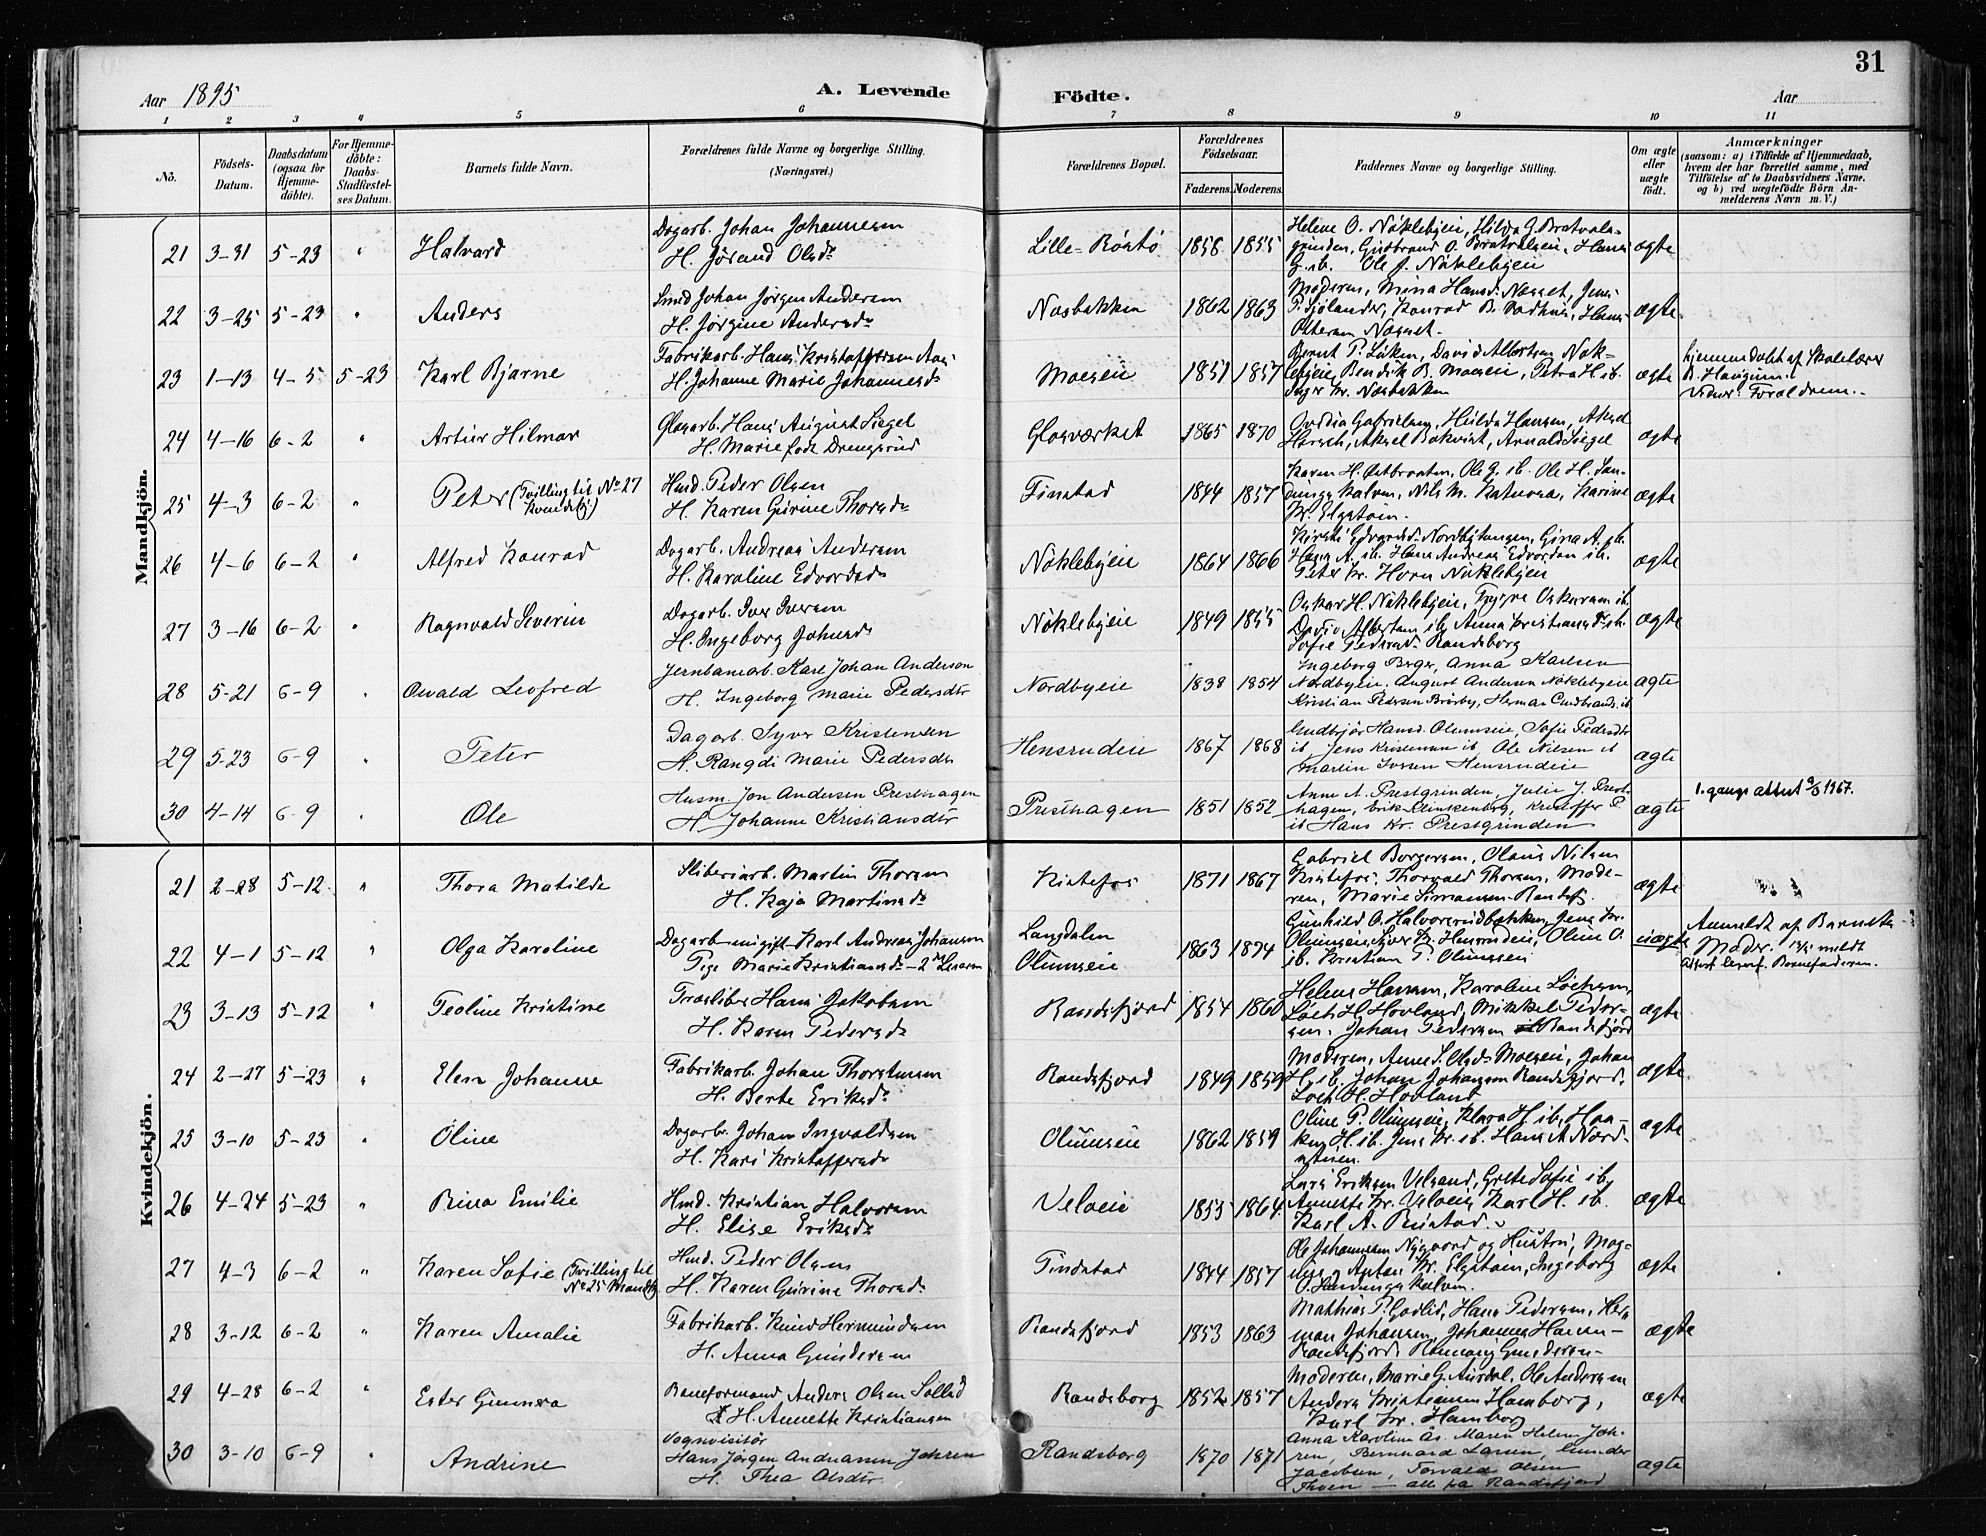 31
Aar 1895
A. Levende Födte.
Aar
1 2 3 4 5 6 7 8 9 10 11
No.
Födsels-Datum.
Daabsdatum (ogsaa for Hjemme-döbte).
For Hjemme-döbte: Daabs-Stadfæstel-ses Datum.
Barnets fulde Navn.
Forældrenes fulde Navne og borgerlige Stilling. (Næringsvei.)
Forældrenes Bopæl.
Forældrenes Födselsaar.
Faderens. Moderens.
Faddernes Navne og borgerlige Stilling.
Om ægte eller uægte födt.
Anmærkninger
(saasom: a) i Tilfælde af Hjemmedaab, hvem der har forrettet samme, med Tilföielse af to Daabsvidners Navne, og b) ved uægtefödte Börn Anmelderens Navn m. V.)
Mandkjön.
21 3-31 5-23 " Halvard
Dagarb. Johan Johannesen
H. Jörand Olsdr
Lille-Röstö 1858 1855
Helene O. Nöklebyeie, Hilda G.
Ole J. Nöklebyeie
ægte
22 3-25 5-23 " Anders
Smed Johan Jörgen Andersen
H. Jörgine Andersdr
Næsbakken 1862 1863
Moderen, Mina Hansdr Næsset, Jens
P. Sjölander, Konrad B.
Pettersen Næsset.
ægte
23 1-13 4-5 5-23 Karl Bjarne
Fabrikarb. Hans Kristoffersen
H. Johanne Marie Johannesdr
Moeseie 1851 1857
Bernt P. Löken, David Albertsen Nök-
lebyeie, Bendik B. Moeseie, Petra H. ib.
Inger Kr. Næsbakken
ægte
hjemmedöbt af Skolelærer
B. Haugum.
Vidner: Forældrene.
24 4-16 6-2 " Artur Hilmar
Glasarb. Hans August Siegel
H. Marie född Drengsrud
Glasværket 1865 1870
Ovidia Gabrielsen, Hulda Hansen, Aksel
Hersch, Aksel Bokvist, Arnold Siegel
ægte
25 4-3 6-2 " Peter (Tvilling til No 27
Kvindekj.)
Hmd. Peder Olsen
H. Karen Gurine Thorsdr
Finstad 1844 1857
Karen H. Østbraaten, Ole G. ib. Ole H.
Kalven, Nils Kr. Karine
Kr. Elgstöen.
ægte
26 4-6 6-2 " Alfred Konrad
Dagarb. Andreas Andersen
H. Karoline Edvardsdr
Nöklebyeie 1864 1866
Kirsti Edvardsdr Nordbytangen, Gina A. ib.
Hans A. ib. Hans Andreas Edvardsen ib.
Peter Kr. Horn Nöklebyeie
ægte
27 3-16 6-2 " Ragnvald Severin
Dagarb. Iver Iversen
H. Ingeborg Johnsdr
Nöklebyeie 1849 1855
Oskar H. Nöklebyeie, Oskarsen ib.
David Albertsen ib. Anna Kristiansdr ib.
Sofie Pedersdr Randsborg
ægte
28 5-21 6-9 " Osvald Leofred
Jernbanearb. Karl Johan Andersen
H. Ingeborg Marie Pedersdtr
Nordbyeie 1838 1854
Ingeborg Berger, Anna Karlsen
Nordbyeie, August Andersen Nöklebyeie
Kristian Pedersen Brörby, Herman Gundbrands. ib
ægte
29 5-23 6-9 " Peter
Dagarb. Syver Kristensen
H. Rangdi Marie Pedersdtr
Hensrudeie 1867 1868
Gudbjör Hansd. Olumseie, Sofie Pedersdtr
ib Jens Kristensen ib, Ole Nilsen ib
Martin Iversen Hensrudeie
ægte
30 4-14 6-9 " Ole
Husm. Jon Andersen Presthagen
H. Johanne Kristiansdtr
Presthagen 1851 1852
Anne A. Prestgrinden, Julie J. Prest-
hagen, Erik Klinkenberg, Kristoffer P.
ib Hans Kr. Prestgrinden
ægte
1. gangs attest 1967.
Kvindekjön.
21 2-28 5-12 " Thora Matilde
Sliberiarb. Martin Thoresen
H. Kaja Martinsdr
Kistefos 1871 1867
Gabriel Borgersen, Olaus Nilsen
Kistefos, Thorvald Thoresen, Mode-
ren, Marie Simonsen Randsfj.
ægte
22 4-1 5-12 " Olga Karoline
Dagarb. ungift Karl Andreas Johansen
Pige Marie Kristiansdr - 2det Leierm
Langdalen
Olumseie 1863 1874
Gunhild O. Halvorsrudbakken, Jens Kr.
Olumseie, Syver Kr. Hensrudeie, Oline O.
ib. Kristian P. Olumseie
uægte
Anmeldt af Barnets
Moder. meldt
Barnefaderen.
23 3-13 5-12 " Teoline Kristine
Træsliber Hans Jakobsen
H. Karen Pedersdr
Randsfjord 1854 1860
Helene Hansen, Karoline
H. Hovland, Mikkel Peder-
sen, Johan Pedersen Randsfjord
ægte
24 2-27 5-23 " Elen Johanne
Fabrikarb. Johan Thorstensen
H. Berte Eriksdr
Randsfjord 1849 1859
Moderen, Anne S. Olsdr Moeseie, Johan
H. ib. Johan Johansen Randsfjord,
H. Hovland
ægte
25 3-10 5-23 " Oline
Dagarb. Johan Ingvaldsen
H. Kari Kristoffersdr
Olumseie 1862 1859
Oline P. Olumseie, Klara H. ib. Haa-
ken H. ib. Jens Kr. ib. Hans A. Nord-
stuen.
ægte
26 4-24 5-23 " Rina Emilie
Hmd. Kristian Halvorsen
H. Elise Eriksdr
Veloeie 1853 1864
Lars Eriksen Velsand, Grete Sofie ib.
Annette Kr. Veloeie, Karl H. ib.
Karl A.
ægte
27 4-3 6-2 " Karen Sofie (Tvilling til
No 25 Mandkj.)
Hmd. Peder Olsen
H. Karen Gurine Thorsdr
Finstad 1844 1857
Ole Johannesen Nygaard og Hustru, Mag-
Anton Kr. Elgstöen, Ingeborg
O. Kalven.
ægte
28 3-12 6-2 " Karen Amalie
Fabrikarb. Knud Hermundsen
H. Anna Gundersen
Randsfjord 1853 1863
Mathias P. Godlid, Hans Pedersen, Her-
man Johansen, Johanna Hansen
Randsfjord, Gundersen
ægte
29 4-28 6-2 " Ester Gunnva
Baneformand Anders Olsen Sollid
H. Annette Kristiansen
Randsborg 1852 1857
Moderen, Marie G. Aurdal, Ole Andersen
Anders Kristiansen Hamborg,
Karl Kr. Hamborg
ægte
30 3-10 6-9 " Andrine
Vognvisitör
Hans Jörgen Andreassen Johren
H. Thea Olsdtr
Randsborg 1870 1871
Anna Karoline Ås. Maren Helene Joh-
ren, Bernhard Larsen, Gunder
Jacobsen, Torvald Olsen
Thoen - alle på Randsfjord
ægte